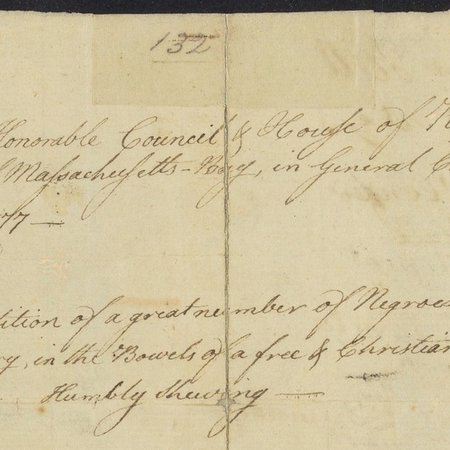 132
Honorable Council & House of
Massachusetts-Bay, in General
77 —
tition of a great number of Negroes
ry, in the Bowels of a free & Christian
Humbly shewing —